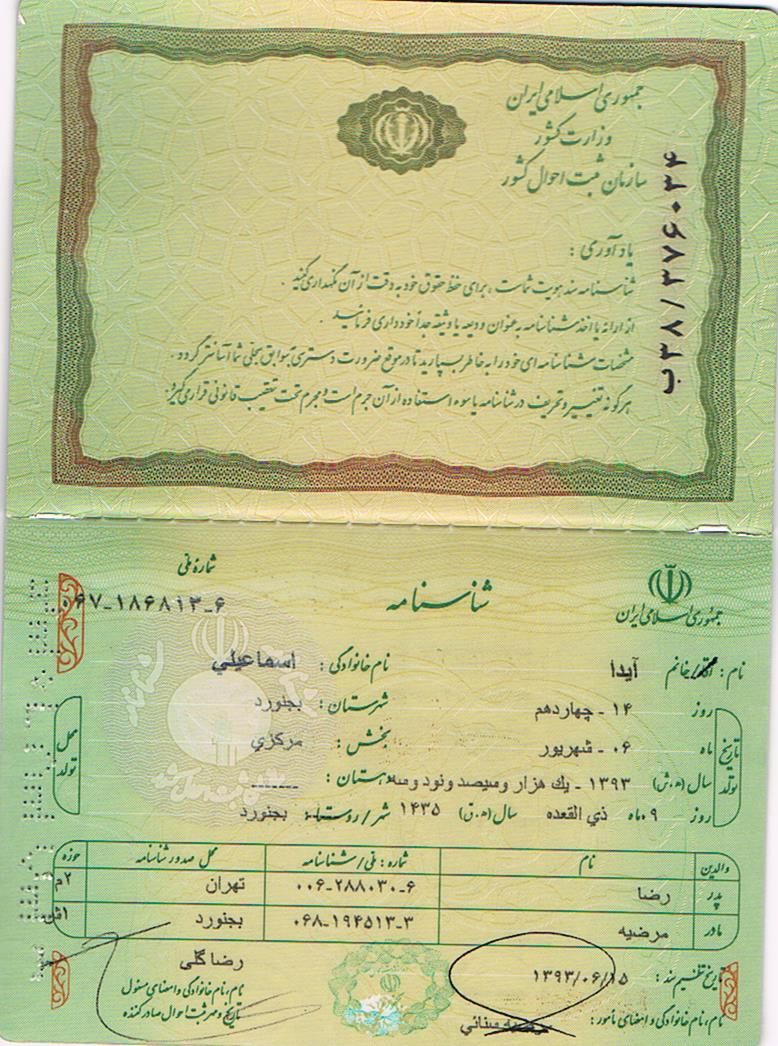 جمهوری اسلامی ایران
وزارت کشور
سازمان ثبت احوال کشور
ب۳۸/۳۷۶۰۳۴
یادآوری :
شناسنامه سند هویت شماست ، برای حفظ حقوق خود به دقت از آن نگهداری کنید .
از ارائه یا اخذ شناسنامه به عنوان ودیعه یا وثیقه جداً خودداری فرمائید .
مشخصات شناسنامه ای خود را به خاطر بسپارید تا در موقع ضرورت دسترسی بسوابق سجلی شما آسانتر گردد .
هرگونه تغییر و تحریف در شناسنامه یا سوء استفاده از آن جرم است و مجرم تحت تعقیب قانونی قرار می گیرد.
جمهوری اسلامی ایران
شناسنامه
شماره ملی
۰۶۷-۱۸۶۸۱۳-۶
نام : آقا/خانم آیدا
نام خانوادگی : اسماعيلي
تاریخ تولد
روز ۱۴ - چهاردهم
ماه ۰۶ - شهریور
سال (ه.ش) ۱۳۹۳ - يك هزار وسيصد ونود وسه
روز ۹ ماه ذي القعده سال (ه.ق) ۱۴۳۵
محل تولد
شهرستان : بجنورد
بخش : مركزي
دهستان : ------
شهر / روستا : بجنورد
والدین نام شماره : ملی / شناسنامه محل صدور شناسنامه حوزه
پدر رضا ۰۰۶-۲۸۸۰۳۰-۶ تهران ۲م
مادر مرضیه ۰۶۸-۱۹۴۵۱۳-۳ بجنورد
تاریخ تنظیم سند : ۱۳۹۳/۰۶/۱۵
نام، نام خانوادگی و امضای مأمور : مرضیه سنائي
رضا گلی
نام، نام خانوادگی و امضای مسئول
تاریخ و مهر ثبت احوال صادر کننده